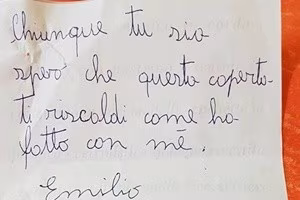 Chiunque tu sia
spero che questa coperta
ti riscaldi come ha
fatto con mé.
Emilio